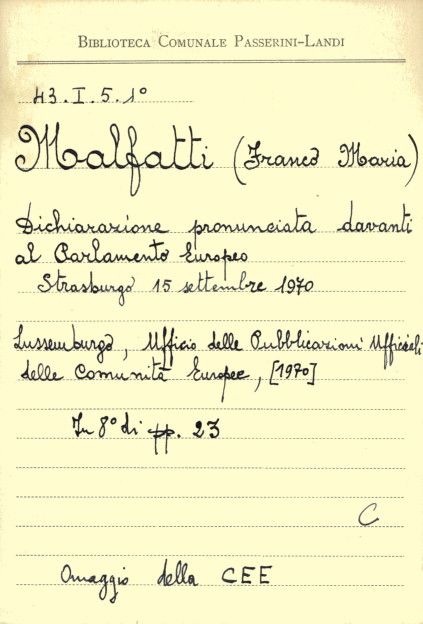 BIBLIOTECA COMUNALE PASSERINI-LANDI
43.I.5.1°
Malfatti (Franco Maria)
Dichiarazione pronunciata davanti
al Parlamento Europeo
Strasburgo 15 settembre 1970
Lussemburgo, Ufficio delle Pubblicazioni Ufficiali
delle Comunità Europee, [1970]
In 8° di pp. 23
C
Omaggio della CEE